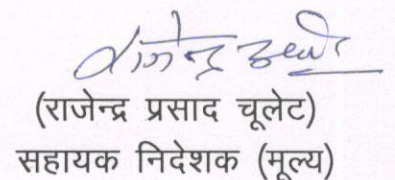 (राजेन्द्र प्रसाद चूलेट)
सहायक निदेशक (मूल्य)